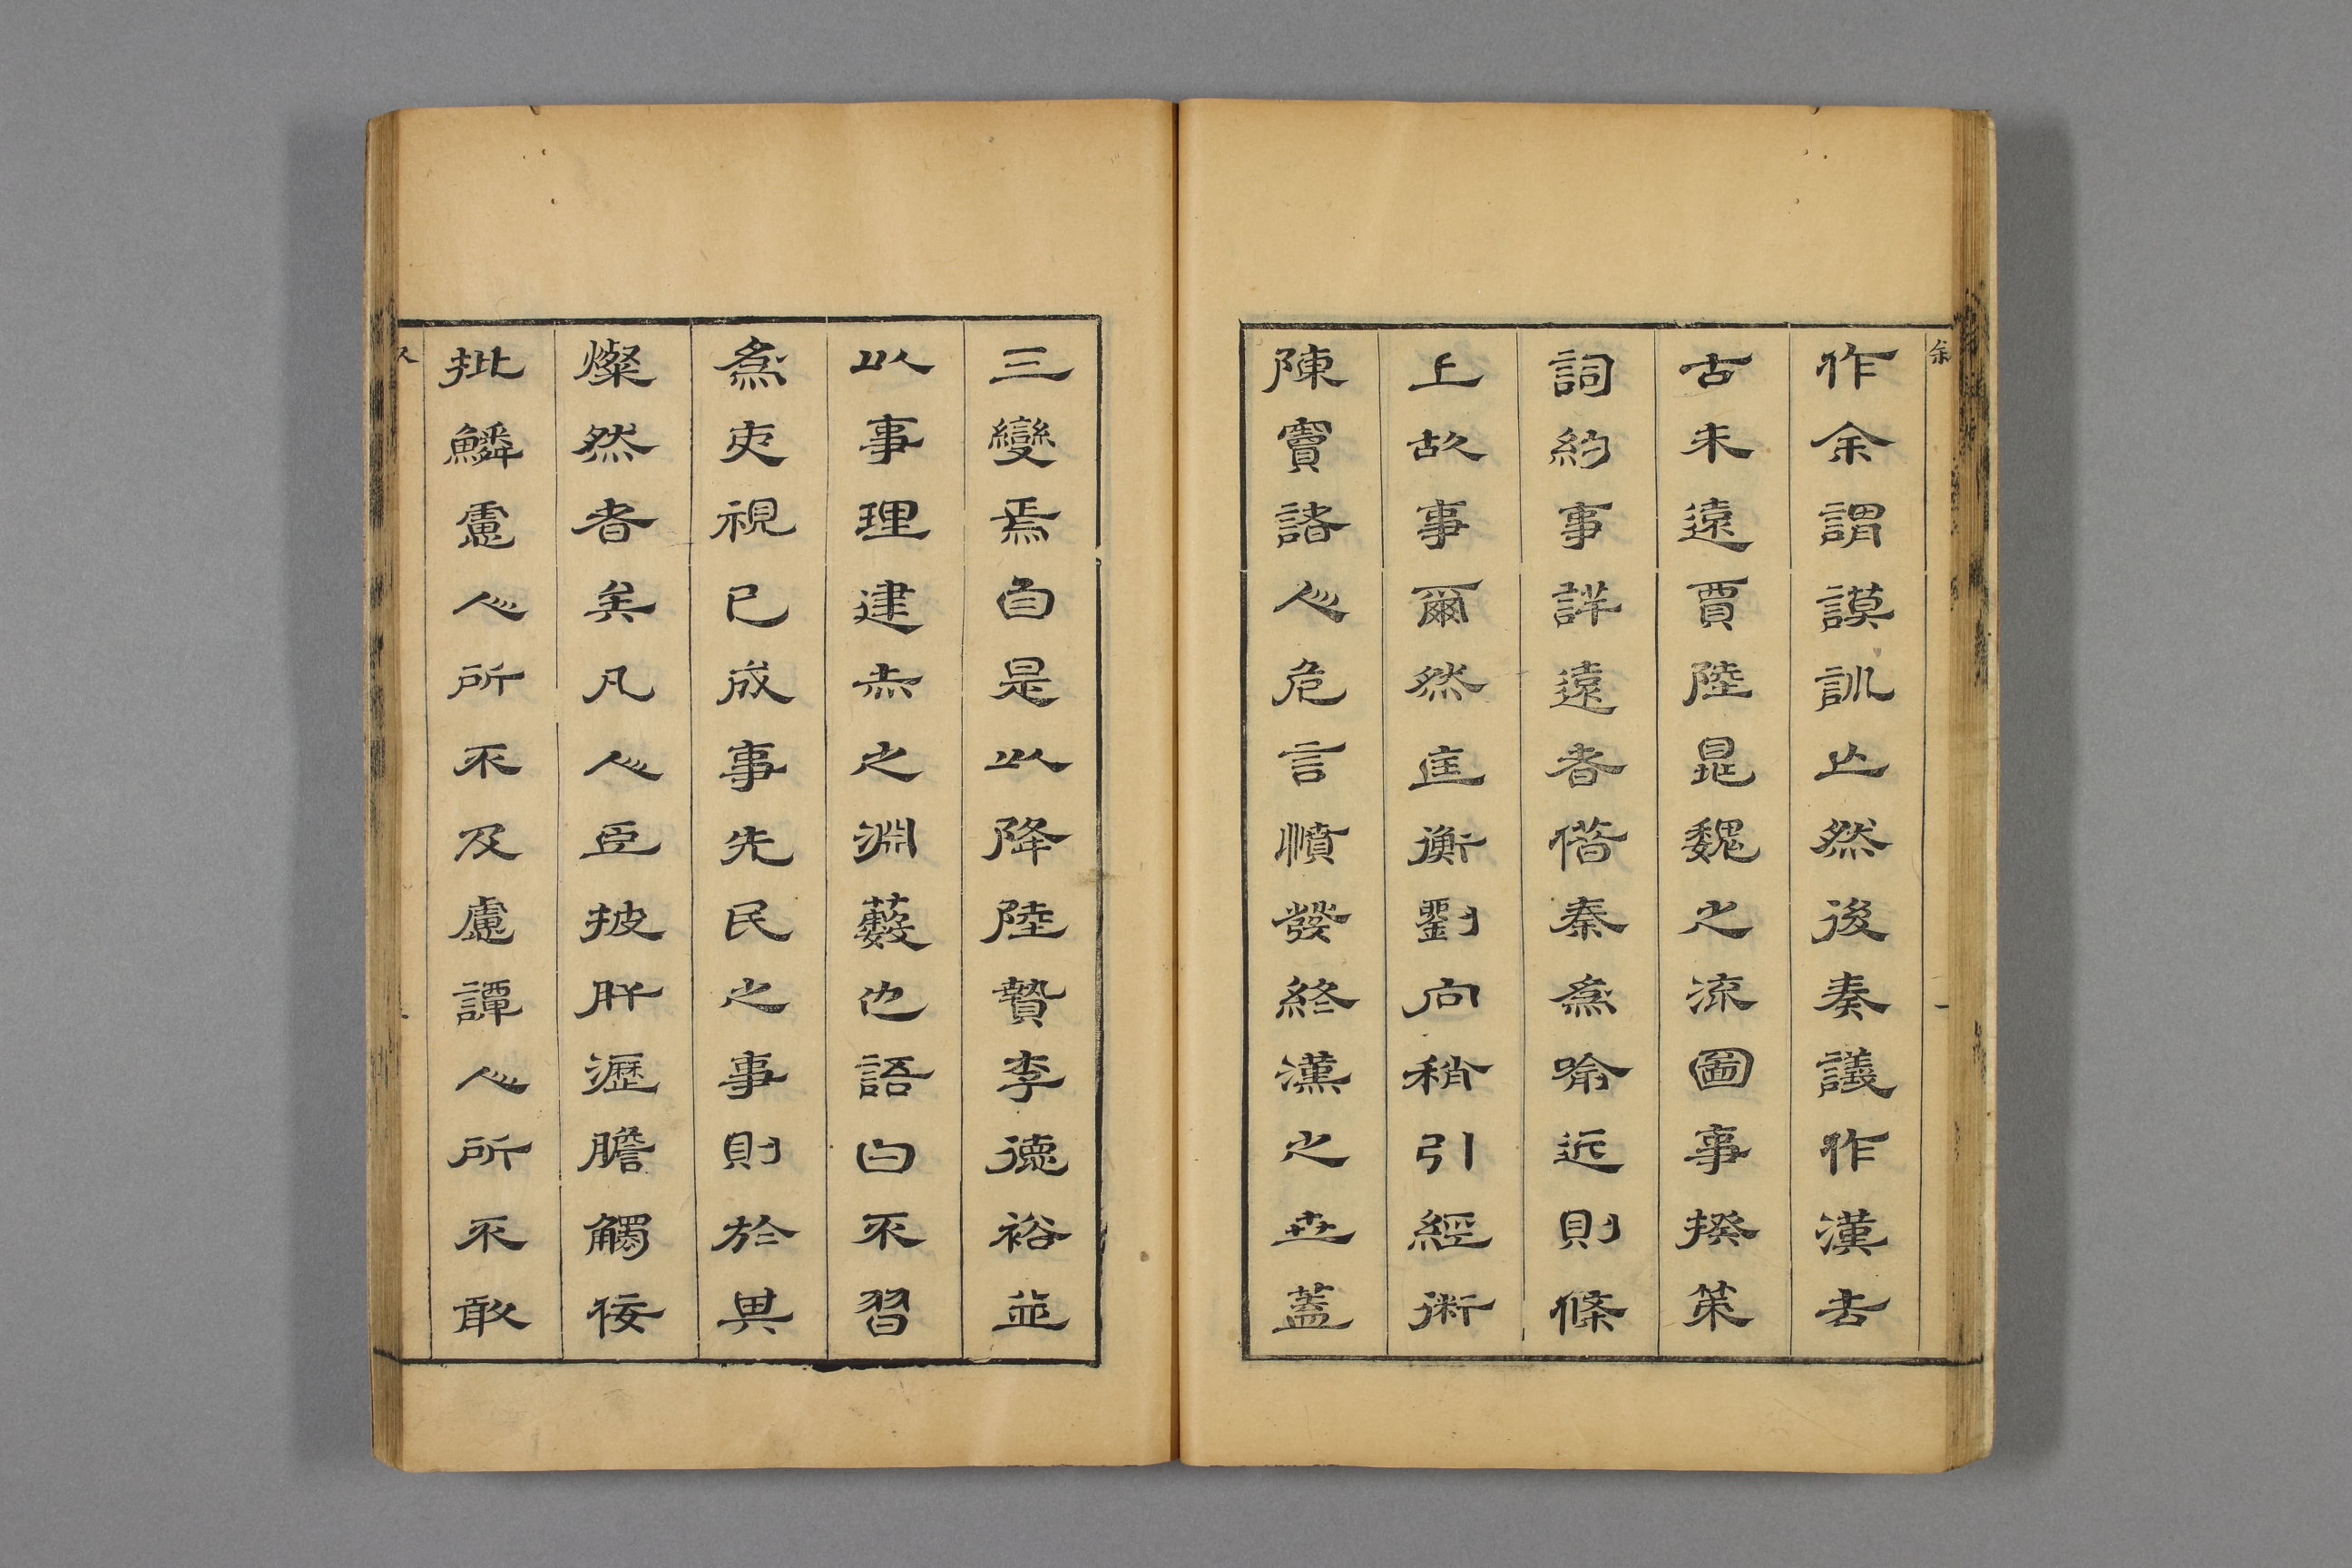 作余謂謨訓止然後奏議作漢去
古未遠賈陸晁魏之流圖事揆策
詞約事詳遠者借秦為喻近則條
上故事爾然匡衡劉向稍引經術
陳竇諸人危言憤發終漢之世蓋
三變焉自是以降陸贄李德裕並
以事理建赤之淵藪也語曰不習
為吏視已成事先民之事則於異
燦然者矣凡人臣披肝瀝膽觸佞
批鱗慮人所不及慮譚人所不敢